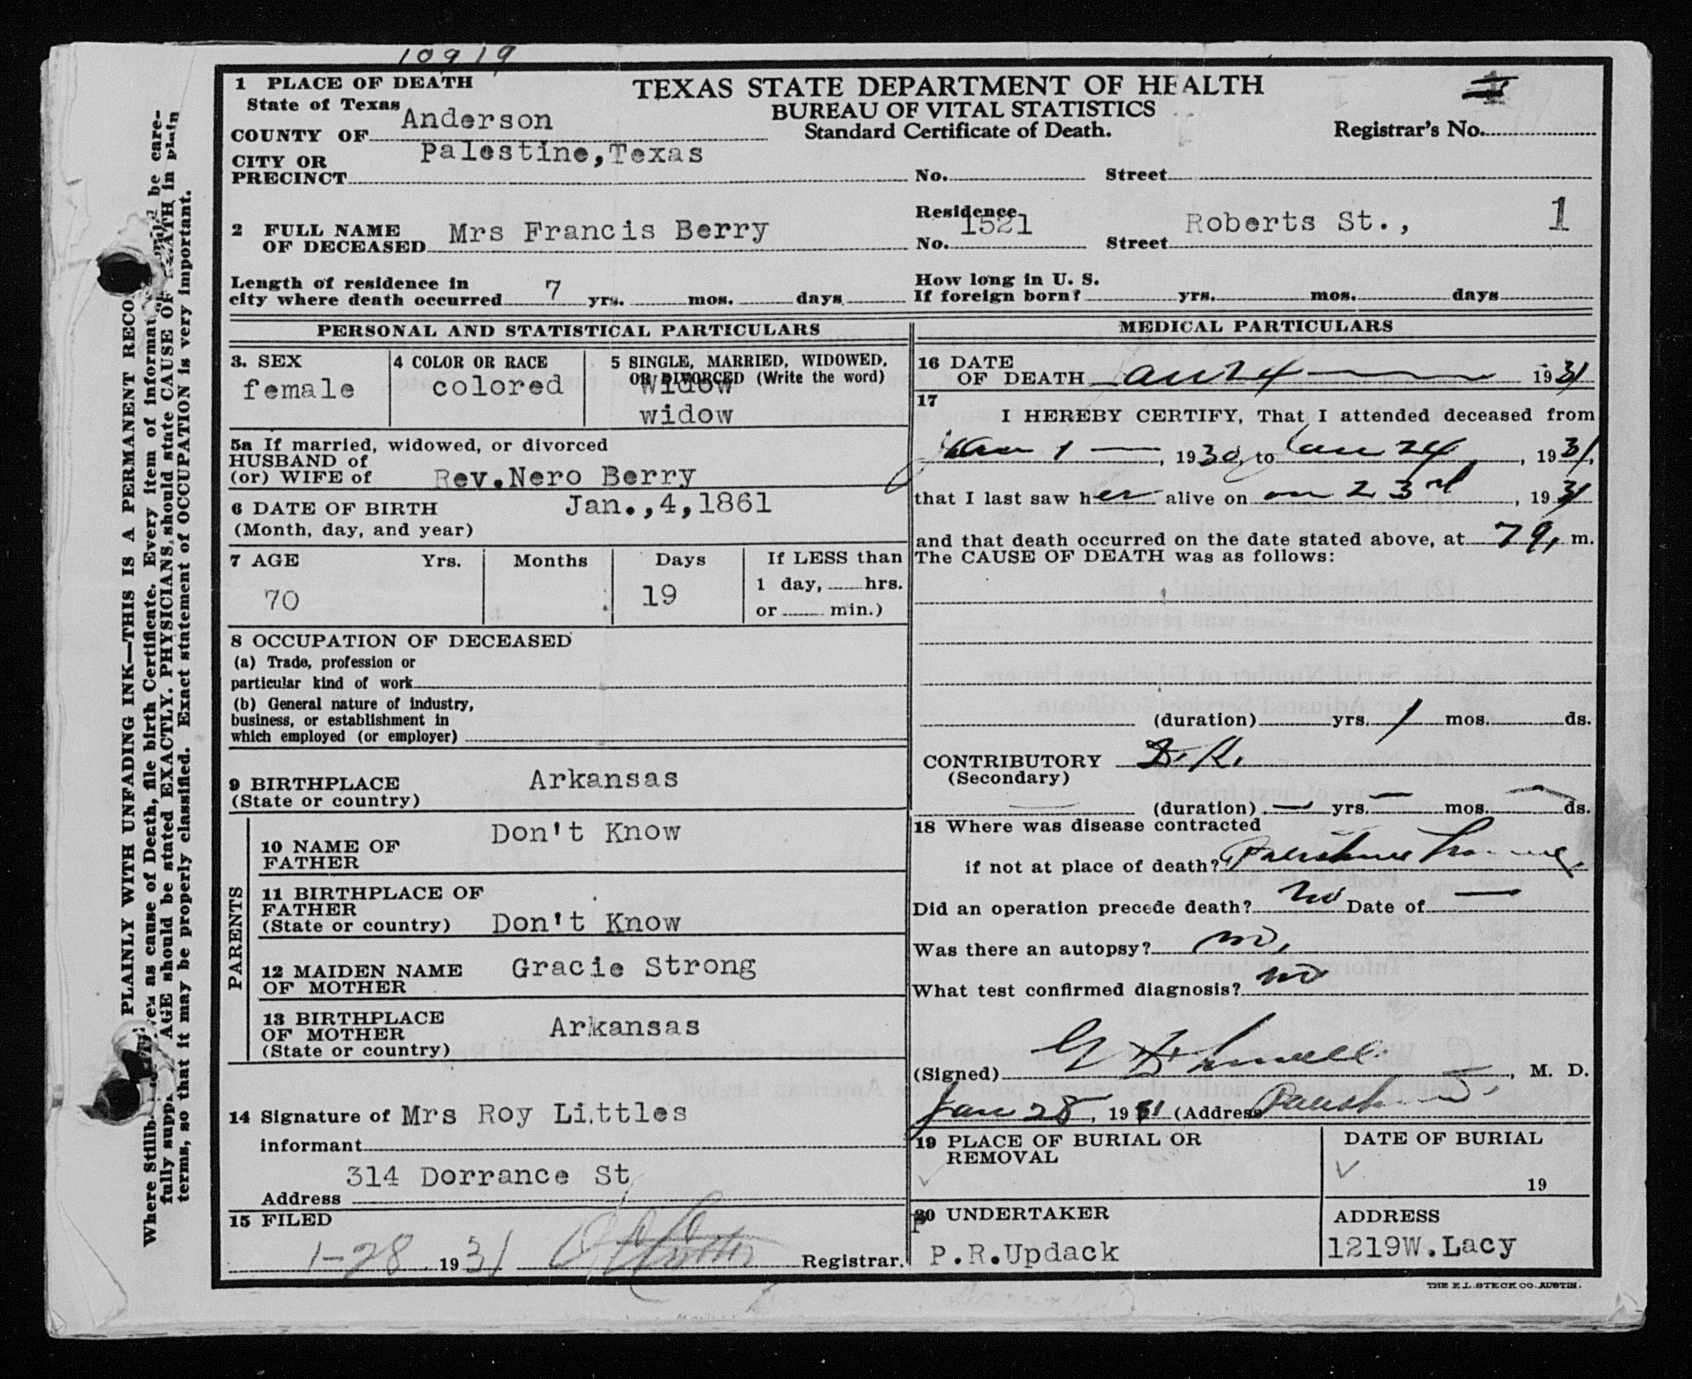 10919
1 PLACE OF DEATH
TEXAS STATE DEPARTMENT OF HEALTH
BUREAU OF VITAL STATISTICS
Standard Certificate of Death.
State of Texas
COUNTY OF Anderson
Registrar's No.
CITY OR
PRECINCT Palestine, Texas
No. Street
2 FULL NAME
OF DECEASED Mrs Francis Berry
Residence
No. 1521 Street Roberts St., 1
Length of residence in
city where death occurred 7 yrs. mos. days
How long in U. S.
If foreign born? yrs. mos. days
PERSONAL AND STATISTICAL PARTICULARS
3. SEX
female
4 COLOR OR RACE
colored
5 SINGLE, MARRIED, WIDOWED,
OR DIVORCED (Write the word)
widow
widow
5a If married, widowed, or divorced
HUSBAND of
(or) WIFE of Rev.Nero Berry
6 DATE OF BIRTH Jan.,4,1861
(Month, day, and year)
7 AGE Yrs. Months Days If LESS than
70 19 1 day, hrs.
or min.)
8 OCCUPATION OF DECEASED
(a) Trade, profession or
particular kind of work
(b) General nature of industry,
business, or establishment in
which employed (or employer)
9 BIRTHPLACE Arkansas
(State or country)
PARENTS
10 NAME OF
FATHER Don't Know
11 BIRTHPLACE OF
FATHER
(State or country) Don't Know
12 MAIDEN NAME
OF MOTHER Gracie Strong
13 BIRTHPLACE
OF MOTHER Arkansas
(State or country)
14 Signature of Mrs Roy Littles
informant
314 Dorrance St
Address
15 FILED
1-28 1931 Registrar.
MEDICAL PARTICULARS
16 DATE
OF DEATH 24 1931
17
I HEREBY CERTIFY, That I attended deceased from
Jan 1 , 1930, to Jan 24 , 1931,
that I last saw her alive on 23rd , 1931
and that death occurred on the date stated above, at m.
The CAUSE OF DEATH was as follows:
(duration) yrs. 1 mos. ds.
CONTRIBUTORY D.K.
(Secondary)
(duration) yrs. mos. ds.
18 Where was disease contracted
if not at place of death? Palestine
Did an operation precede death? no Date of
Was there an autopsy? no,
What test confirmed diagnosis? no
(Signed) , M. D.
Jan 28, 1931 (Address
19 PLACE OF BURIAL OR
REMOVAL
DATE OF BURIAL
19
20 UNDERTAKER
P.R.Updack
ADDRESS
1219W.Lacy
THE E.L. STECK CO. AUSTIN.
PLAINLY WITH UNFADING INK—THIS IS A PERMANENT
as cause of Death, file birth Certificate. Every item of be care-
fully AGE should be stated EXACTLY. PHYSICIANS should state CAUSE OF DEATH in plain
terms, so that it may be properly classified. Exact statement of OCCUPATION is very important.